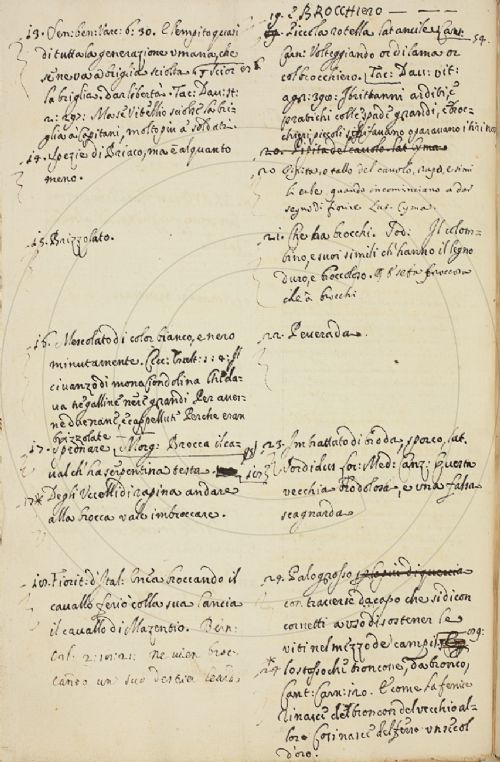 13. Sen: ben: Varc: 6: 30. E s'empito quasi
di tutta la generazione umana, che
se ne va a briglia sciolta
la briglia, dar libertà. Tac: Dav: st:
2: 297: Mosse Vitellio sciolse la bri-
glia a Capitani, molto più a soldati.
14. Spezie di Briaco, ma è alquanto
meno.
15. Brizzolato.
16. Mescolato di color bianco, e nero
minutamente. Cecc:
civanzo di mona Ciondolina
galline nere grandi Per aver-
ne due nane, e cappellute Perche eran
brizzolate
17. Spronare, Morg: Brocca il ca-
val ch'ha serpentina testa
17* Degli Uccelli di rapina andare
alla brocca vale imbroccare.
18. Fiorit: d'Ital: broccando il
cavallo ferio colla sua lancia
il cavallo di Mazentio. Bern:
Orl. 2: 10: 21: ne vien broc-
cando un suo destrier leardo
19. E BROCCHIERO
Piccola rotella lat ancile Cant:
Carn: Volteggiando or di lama or
col brocchiero. Tac: Dav: vit:
agr: 390: I Britanni arditi, e
pratichi colle spade grandi, e broc-
chieri piccoli schifavano o paravano i tiri 54.
20. Pipita del cavolo. lat cyma
20 Pipita, o tallo del cavolo, rapo, e simi
li erbe, quando incominciano a dar
segno di fiorire Lat. Cyma.
21. Che ha brocchi. Pod: Il colom-
bino, e suoi simili ch'hanno il legno
duro, e broccoloso.
che à brocchi
22. Peverada.
23. Imbrattato di broda, sporco, lat.
sordidus for: Med: canz: Questa
vecchia brodolosa, e una falsa
scagnarda
24. Palo grosso
con traverse da capo che si dicon
cornetti a uso di sostener le
viti nel mezzo de campi.
lo stesso che broncone, da bronco,
Cant: Carn: 120. E come la fenice
Rinasce del broncon del vecchio al-
loro Così nasce del ferro un secol
d'oro.